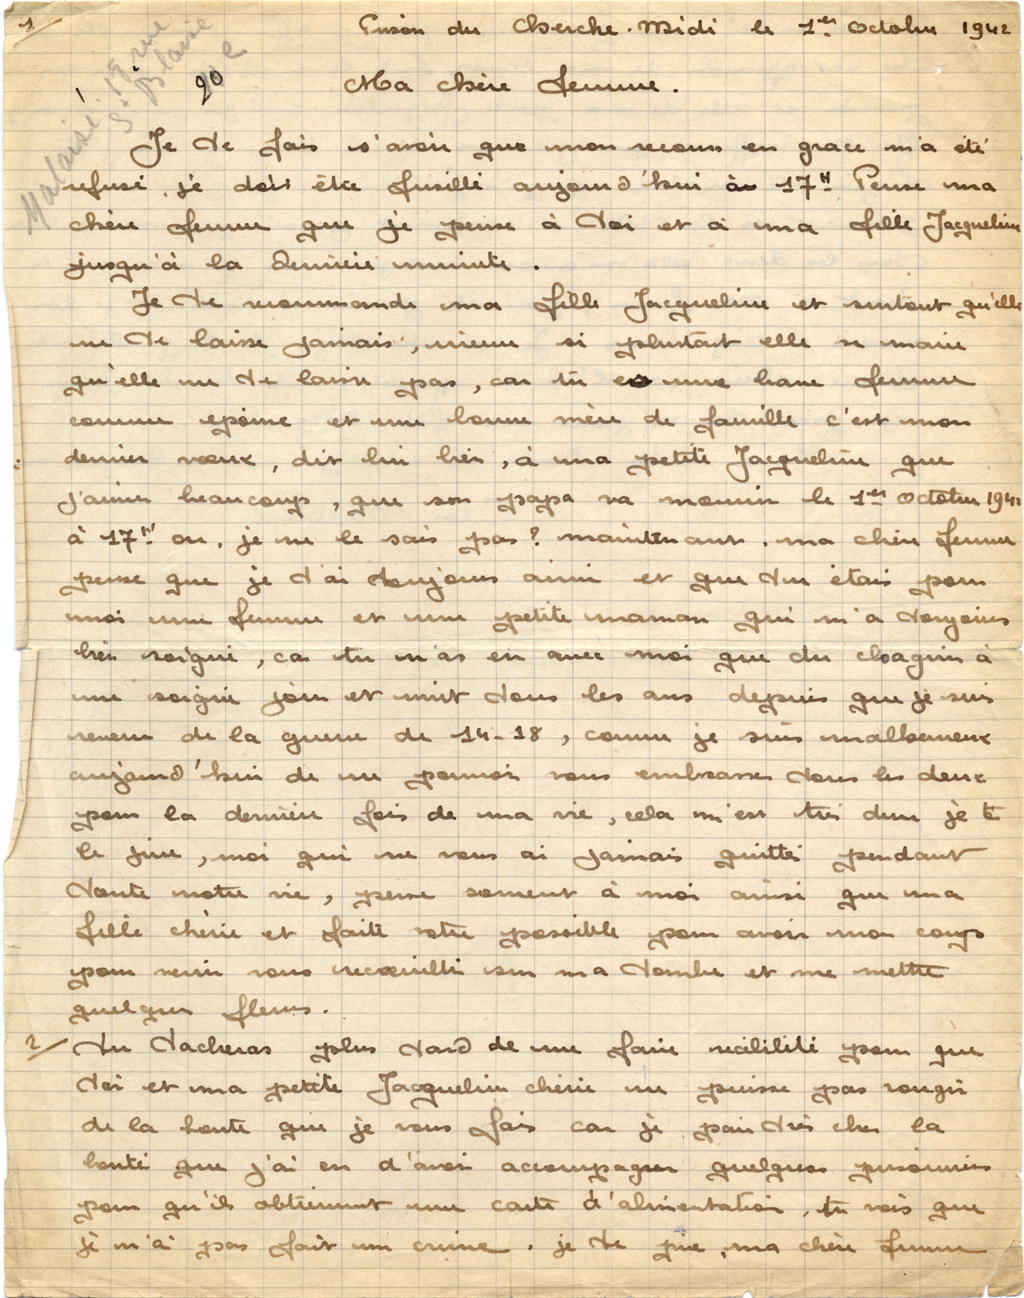 1
Prison du Cherche-Midi le 1er Octobre 1942
Malaisé 18 rue
St Blaise
20
Ma chère femme.
Je te fais s'avoir que mon recours en grace m'a été
refusé, je dois être fusillé aujourd'hui à 17H Pense ma
chère femme que je pense à toi et à ma fille Jacqueline
jusqu'à la dernière minute.
Je te recommande ma fille Jacqueline et surtout qu'elle
ne te laisse jamais, même si plustart elle se marie
qu'elle ne te laisse pas, car tu es une bonne femme
comme epouse et une bonne mère de famille c'est mon
dernier vœux, dit lui bien, à ma petite Jacqueline que
j'aimer beaucoup, que son papa va mourir le 1er octobre 1942
à 17H ou, je ne le sais pas? maintenant, ma chère femme
pense que je t'ai toujours aimé et que tu étais pour
moi une femme et une petite maman qui m'a toujours
bien soigné, car tu n'as eu avec moi que du chagrin à
me soigné jour et nuit tous les ans depuis que je suis
revenu de la guerre de 14-18, comme je suis malheureux
aujourd'hui de ne pouvoir vous embrasser tous les deux
pour la dernière fois de ma vie, cela m'est très dur je te
le jure, moi qui ne vous ai jamais quitté pendant
toute notre vie, pense souvent à moi ainsi que ma
fille chérie et faite votre possible pour avoir mon corps
pour venir vous recueilli sur ma tombe et me mettre
quelques fleurs.
2
tu tacheras plus tard de me faire réabilité pour que
toi et ma petite Jacqueline chérie ne puisse pas rougir
de la honte que je vous fais car je paie très cher la
bonté que j'ai eu d'avoir accompagner quelques prisonniers
pour qu'ils obtiennent une carte d'alimentation, tu vois que
je n'ai pas fait un crime. je te prie, ma chère femme